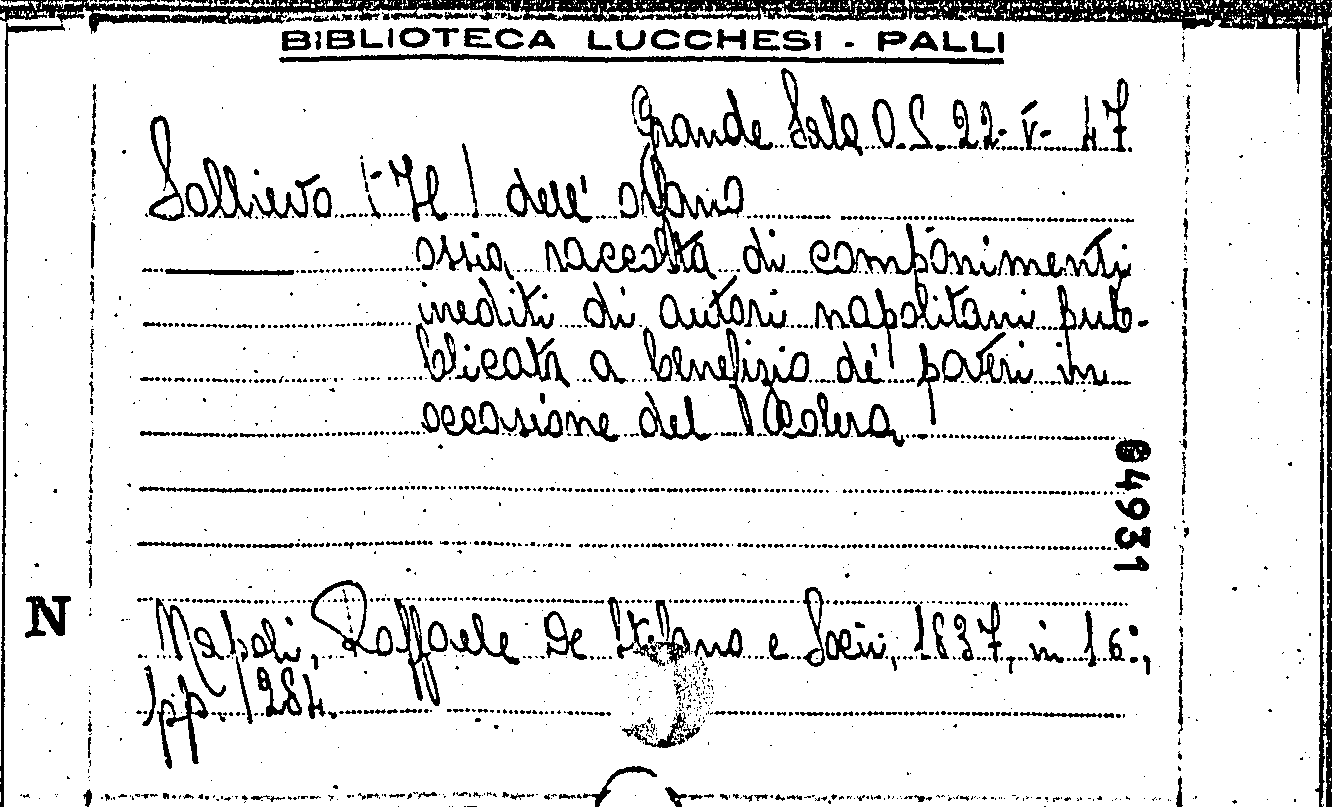 BIBLIOTECA LUCCHESI - PALLI
Grande Sala O.S. 22-V-47
Sollievo (Il) dell' orfano
ossia raccolta di componimenti
inediti di autori napolitani pub-
blicata a benefizio de' poveri in
occasione del Kolera
04931
N
Napoli, Raffaele De Stefano e Socii, 1837, in 16°;
pp. 284.